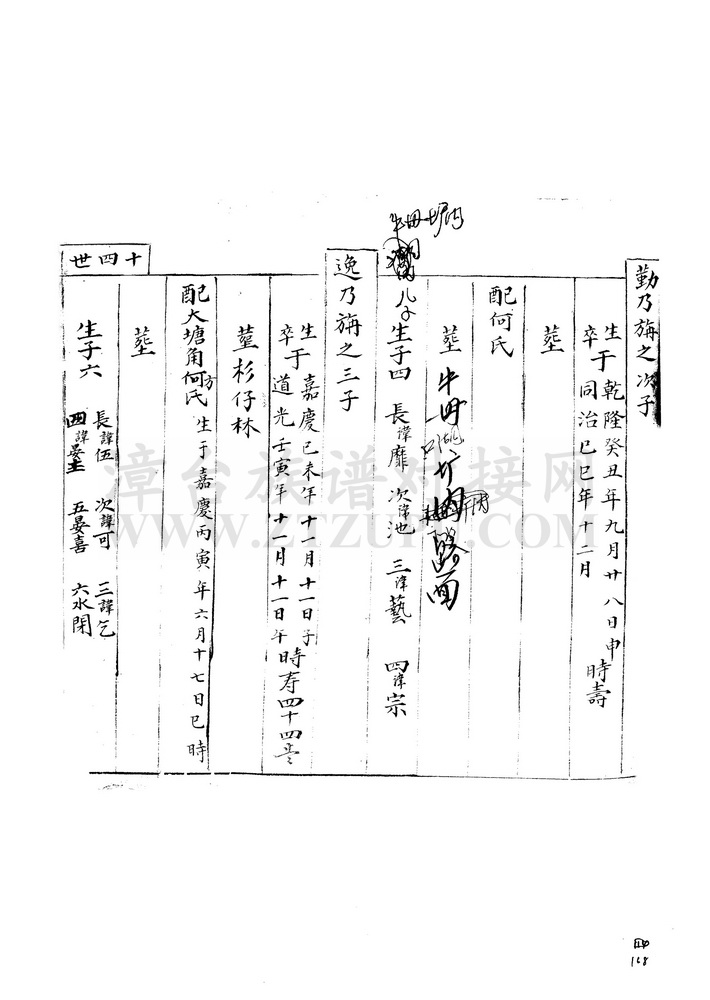 勤乃旃之次子
生于乾隆癸丑年九月廿八日申時壽
卒同治己巳年十二月
塟
配何氏
塟
生子四 長諱靡 次諱池 三諱藝 四諱宗
逸乃旃之三子
生于嘉慶己未年十一月十一日子時寿四十四歲
卒道光壬寅年十一月十一日午
塟杉仔林
配大塘角何氏 生于嘉慶丙寅年六月十七日巳時
塟
生子六 長諱伍 次諱可 三諱乞
四諱晏圭 五晏喜 六水閑
十四世
漳台族谱对接网
四
168